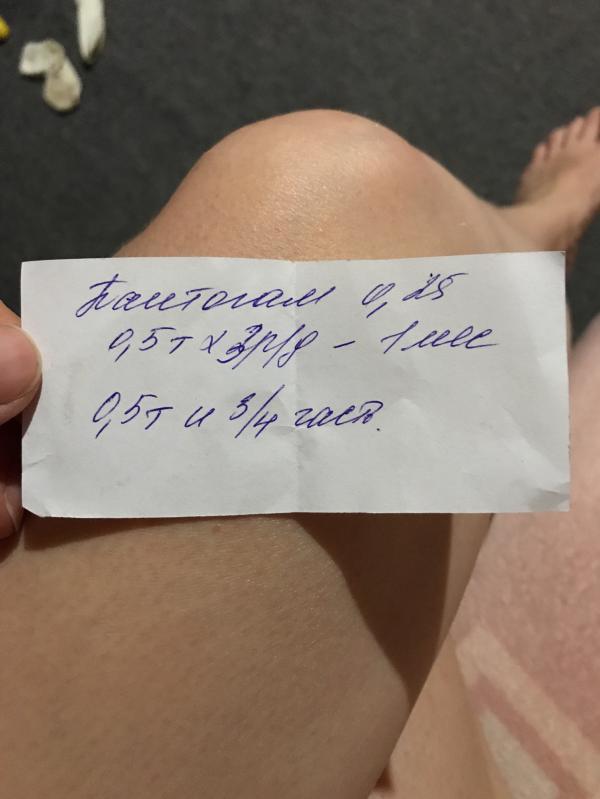 Пантогам 0,25
0,5т х р/д - 1 мес
0,5т и 3/4 част.